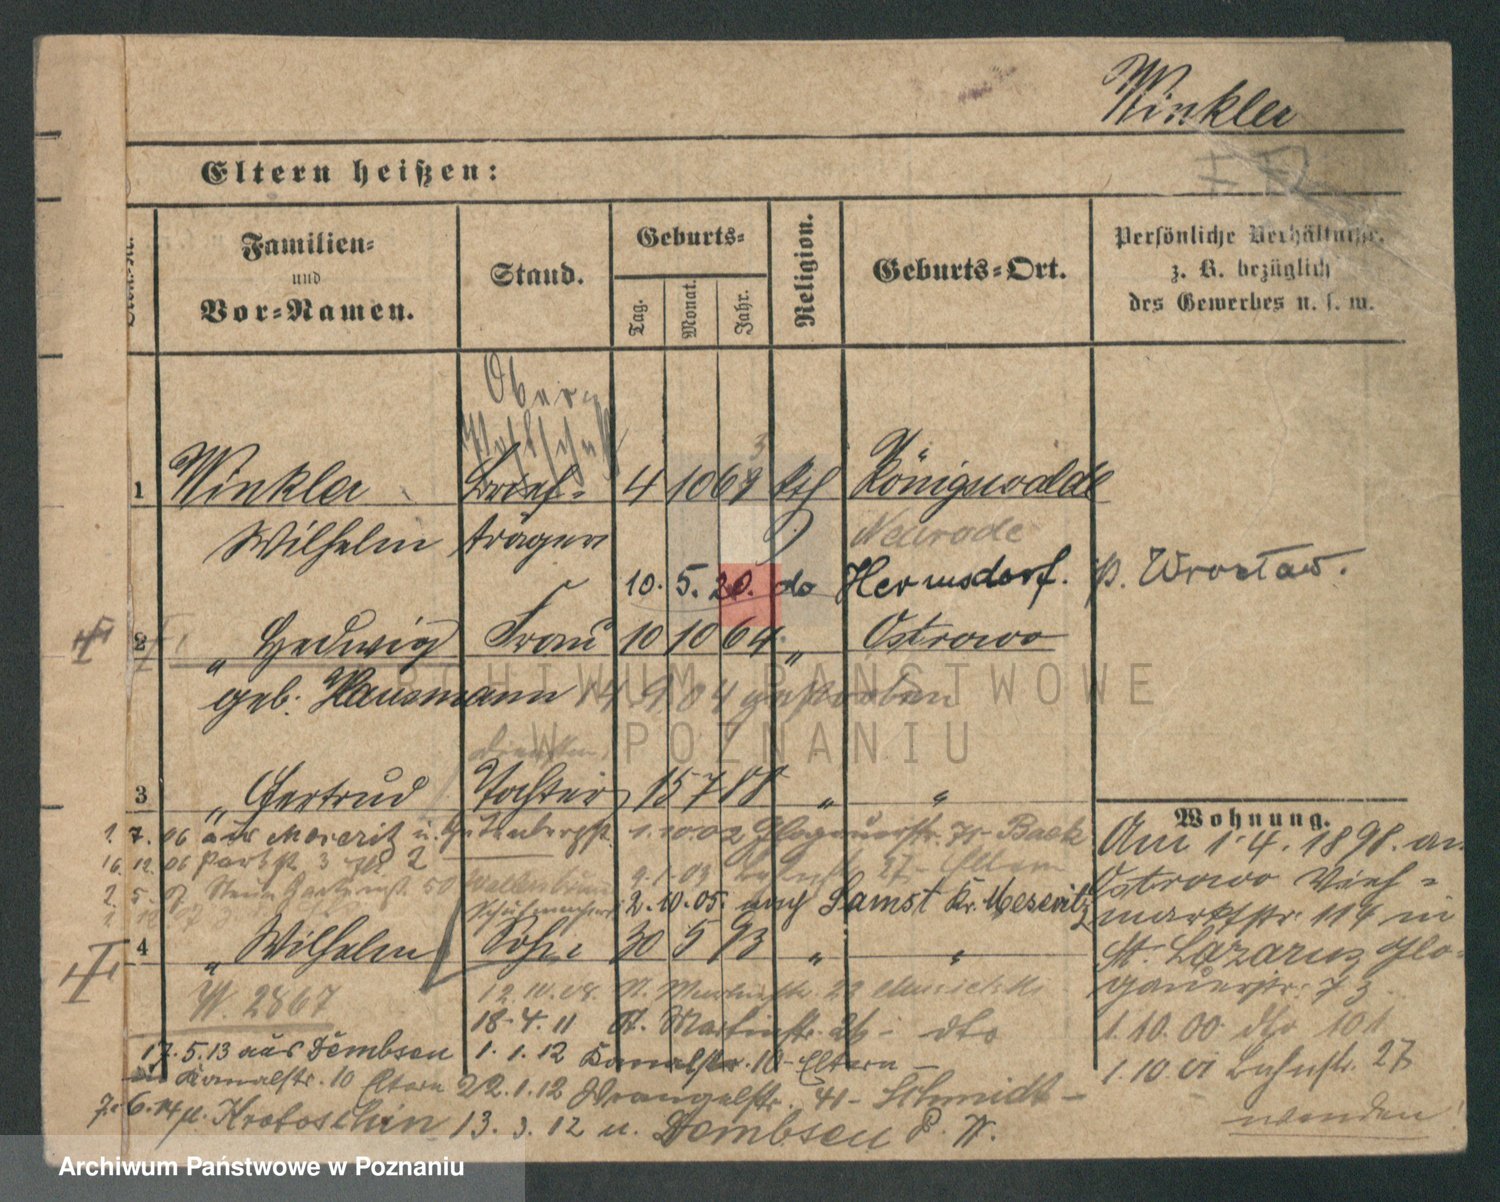 Winkler
Eltern heißen:
Familien=
und
Vor=Namen.
Stand.
Geburts=
Tag.
Monat.
Jahr.
Religion.
Geburts=Ort.
Persönliche Verhältnisse,
z. B. bezüglich
des Gewerbes u. s. w.
Ober
Postschaff
1 Winkler Brief= 4 10 6 kth Königswalde
Wilhelm träger Neurode
10. 5. 20. do Hermsdorf. p. Wrocław.
2 " Hedwig Frau 10 10 64 " Ostrowo
geb. Hausmann 14 9 04 gestorben
3 " Gertrud Tochter 15 7 88 " "
Wohnung.
1. 7. 06 aus Moseritz u. Gutenbergstr. 1. 10 02 Glogauerstr. 75 - Back
Am 1. 4. 1898. an
16. 12. 06 Parkstr. 3 2 9. 1. 03 27 - Eltern
Ostrowo Vieh=
2. 5. 50 2. 10. 05. nach Samst Kr. Meseritz
marktstr. 114 in
4 " Wilhelm Sohn 30 5 93 " "
St. Lazarus Glo=
gauerstr. 73.
W. 2867 12. 10. 08. St. Martinstr. 22
18. 4. 11 St. Martinstr. 26 - dto
1. 10. 00 dto 101
17. 5. 13 aus Dembsen 1. 1. 12 Kanalstr. 10 - Eltern -
1. 10 01 Bahnstr. 27
Kanalstr. 10 Eltern 22. 1. 12 Wrangelstr. 41 - Schmidt -
7. 6. 14 n. Krotoschin 13. 3. 12 n. Dembsen P. W.
wenden!
ARCHIWUM PAŃSTWOWE
W POZNANIU
Archiwum Państwowe w Poznaniu